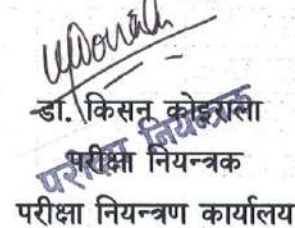 डा. किसन कोइराला
परीक्षा नियन्त्रक
परीक्षा नियन्त्रक
परीक्षा नियन्त्रण कार्यालय